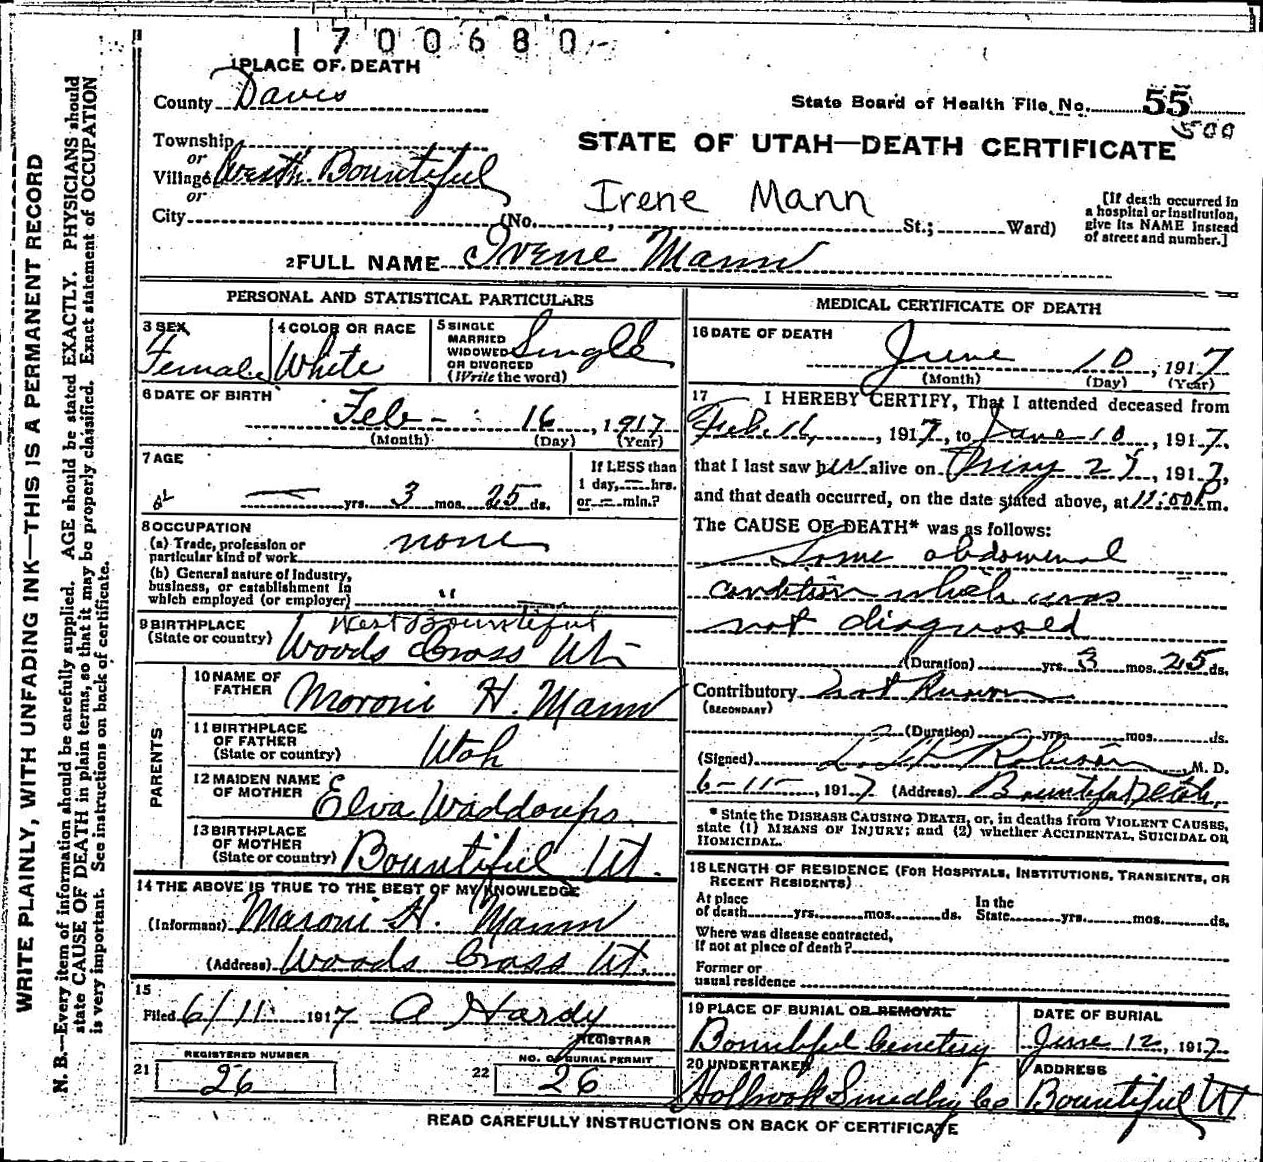 1700680
1 PLACE OF DEATH
County Davis
State Board of Health File No. 55
500
Township
or
Village West Bountiful
or
City (No. , St.; Ward)
STATE OF UTAH—DEATH CERTIFICATE
Irene Mann
[If death occurred in
a hospital or institution,
give its NAME instead
of street and number.]
2 FULL NAME Irene Mann
PERSONAL AND STATISTICAL PARTICULARS
3 SEX
Female
4 COLOR OR RACE
White
5 SINGLE
MARRIED
WIDOWED
OR DIVORCED
(Write the word)
Single
6 DATE OF BIRTH
Feb - 16, 1917
(Month) (Day) (Year)
7 AGE
— yrs. 3 mos. 25 ds.
If LESS than
1 day, — hrs.
or — min.?
8 OCCUPATION
(a) Trade, profession or
particular kind of work none
(b) General nature of Industry,
business, or establishment in
which employed (or employer) "
9 BIRTHPLACE
(State or country)
West Bountiful
Woods Cross Ut
PARENTS
10 NAME OF
FATHER Moroni H. Mann
11 BIRTHPLACE
OF FATHER
(State or country) Utah
12 MAIDEN NAME
OF MOTHER Elva Waddoups.
13 BIRTHPLACE
OF MOTHER
(State or country) Bountiful Ut.
14 THE ABOVE IS TRUE TO THE BEST OF MY KNOWLEDGE
(Informant) Maroni H. Mann
(Address) Woods Cross Ut.
15
Filed 6/11 1917 A Hardy
REGISTRAR
REGISTERED NUMBER
21 26
NO. OF BURIAL PERMIT
22 26
MEDICAL CERTIFICATE OF DEATH
16 DATE OF DEATH
June 10, 1917
(Month) (Day) (Year)
17 I HEREBY CERTIFY, That I attended deceased from
Feb. 16, 1917, to June 10, 1917.
that I last saw her alive on May 25, 1917,
and that death occurred, on the date stated above, at 11:00 P m.
The CAUSE OF DEATH* was as follows:
Some abdomenal
condition which was
not diagnosed
(Duration) yrs. 3 mos. 25 ds.
Contributory Not Known
(SECONDARY)
(Duration) yrs. mos. ds.
(Signed) Robison, M. D.
6-11-, 1917 (Address) Bountiful Utah.
* State the DISEASE CAUSING DEATH, or, in deaths from VIOLENT CAUSES,
state (1) MEANS OF INJURY; and (2) whether ACCIDENTAL, SUICIDAL OR
HOMICIDAL.
18 LENGTH OF RESIDENCE (FOR HOSPITALS, INSTITUTIONS, TRANSIENTS, OR
RECENT RESIDENTS)
At place
of death yrs. mos. ds.
In the
State yrs. mos. ds.
Where was disease contracted,
If not at place of death?
Former or
usual residence
19 PLACE OF BURIAL OR REMOVAL
Bountiful Cemetery
DATE OF BURIAL
June 12, 1917
20 UNDERTAKER
Holbrook Smedley Co
ADDRESS
Bountiful Ut
READ CAREFULLY INSTRUCTIONS ON BACK OF CERTIFICATE
WRITE PLAINLY, WITH UNFADING INK—THIS IS A PERMANENT RECORD
N. B.—Every item of information should be carefully supplied. AGE should be stated EXACTLY. PHYSICIANS should
state CAUSE OF DEATH in plain terms, so that it may be properly classified. Exact statement of OCCUPATION
is very important. See instructions on back of certificate.